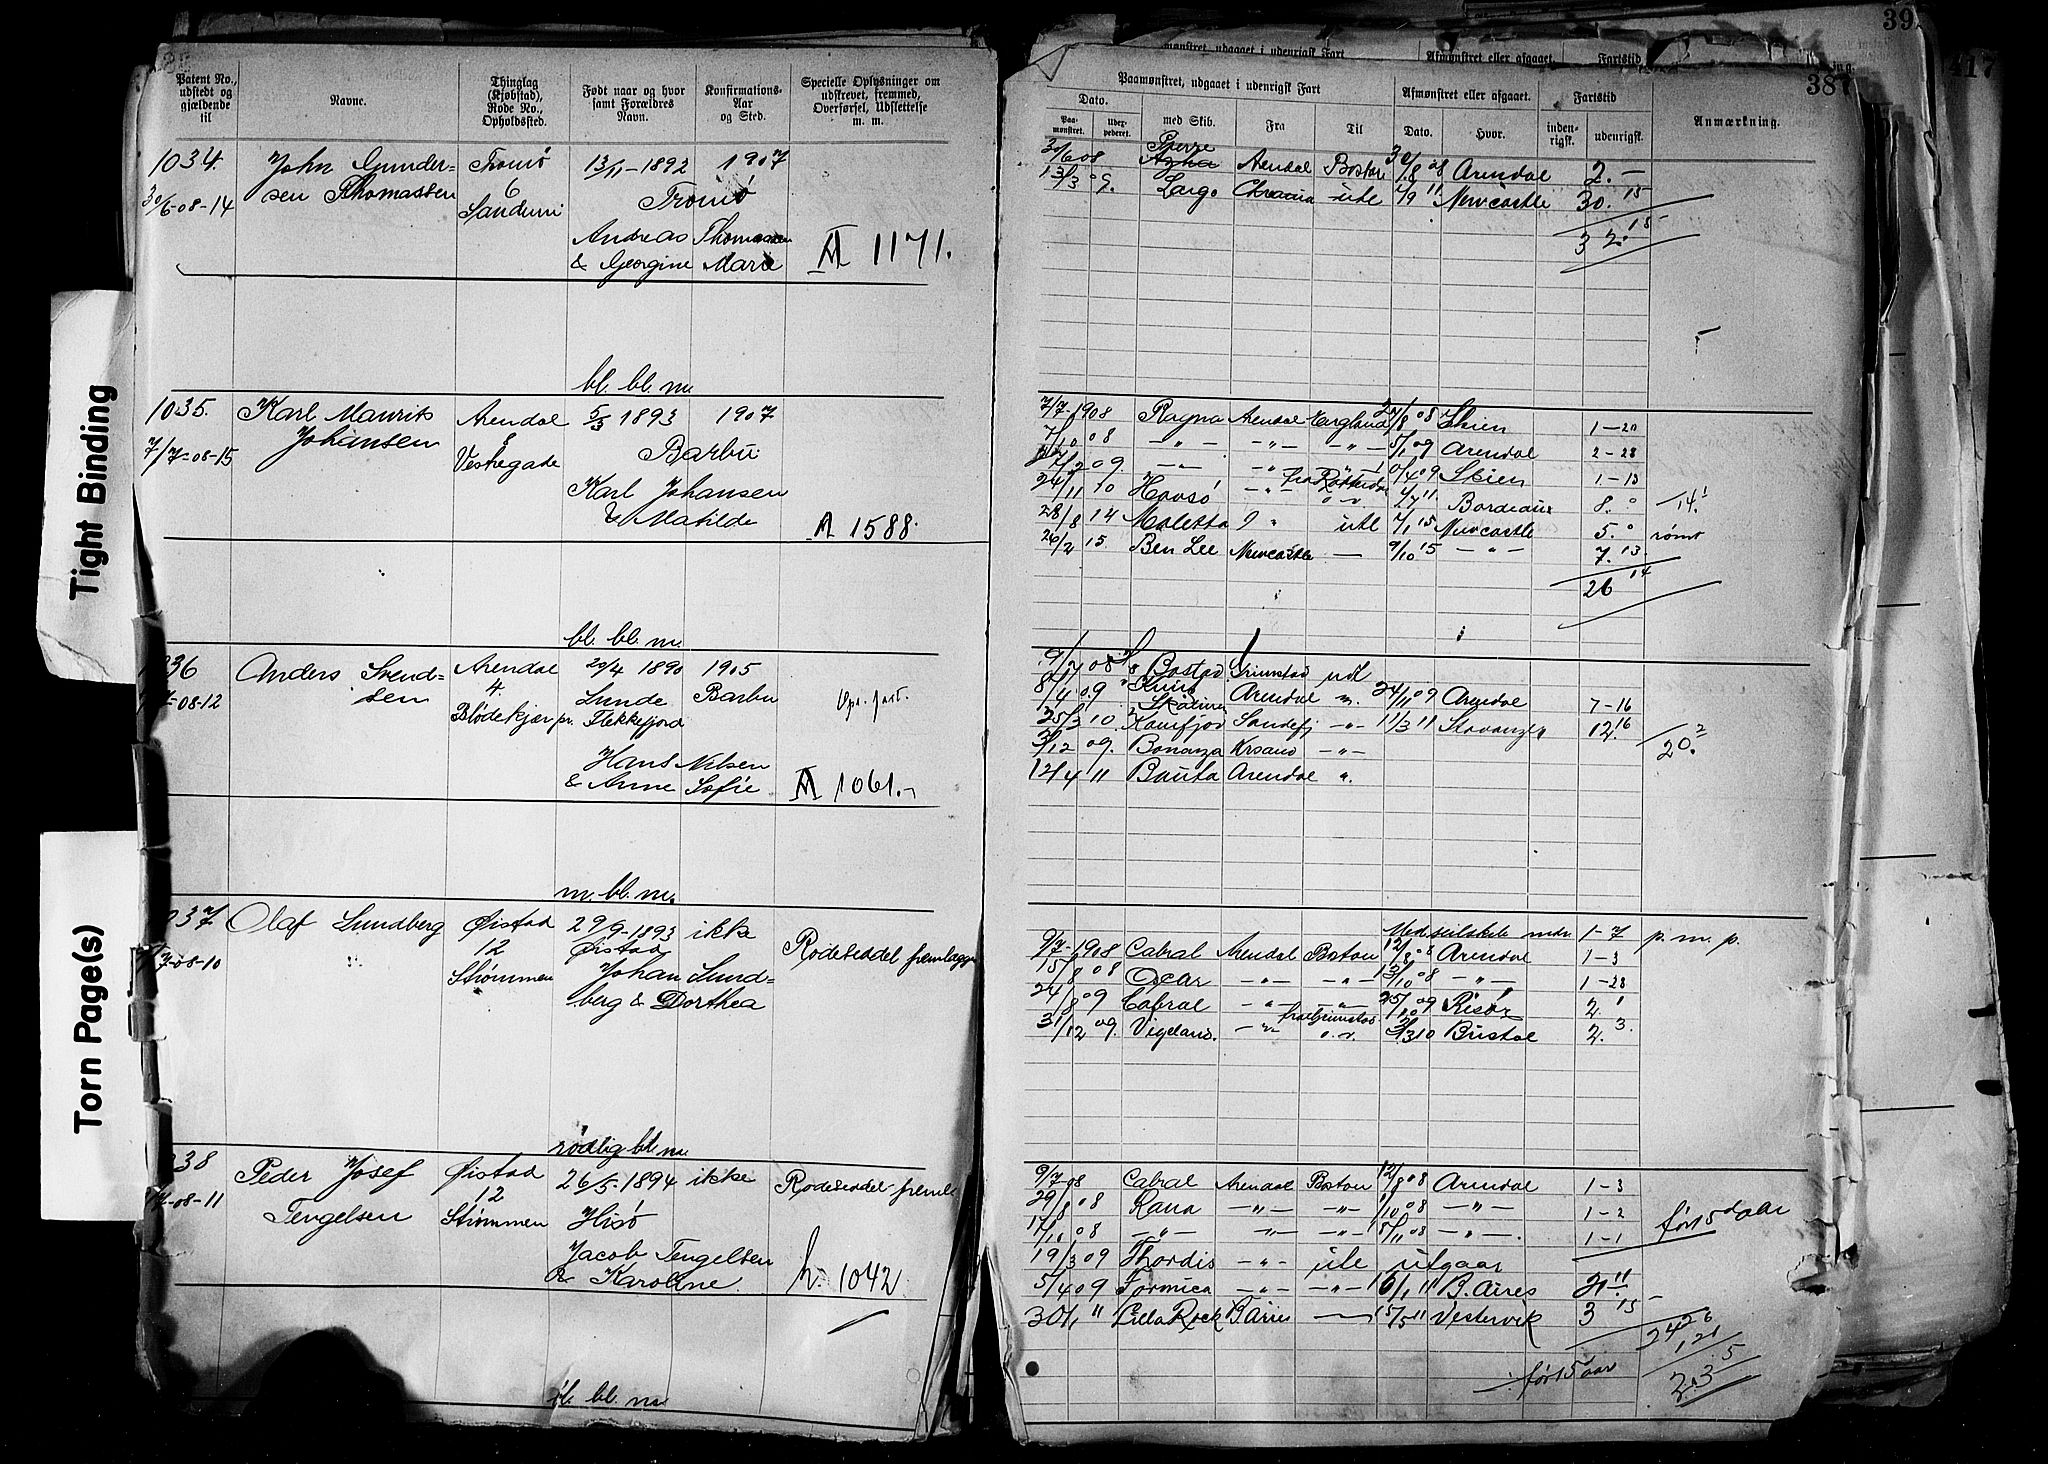 Tight Binding
Torn Page(s)
Patent No., udstedt og gjældende til
Navne.
Thinglag (Kjøbstad), Rode No., Opholdssted.
Født naar og hvor samt Forældres Navn.
Konfirmations- Aar og Sted.
Specielle Oplysninger om udskrevet, fremmed, Overførsel, Udslettelse m. m.
1034. John Gunder- Tromø 13/11-1892 1907
30/6-08-14 sen Thomassen 6 Tromø
Sandum
Andreas Thomassen
& Georgine Marie A 1171.
bl. bl. m.
1035. Karl Maurits Arendal 5/3 1893 1907
7/7-08-15 Johansen 8 Barbu
Vestregade
Karl Johansen
& Matilde A 1588.
bl. bl. m.
1036 Anders Svend- Arendal 20/4 1890 1905
7-08-12 sen 4. Lunde Barbu
Blødekjær pr. Flekkefjord
Hans Nilsen
& Anne Sofie A 1061.
m. bl. m.
1037 Olaf Lundberg Øistad 29/9-1893 ikke
7-08-10 12 Øistad Rodeseddel fremlagt
Strømmen Johan Lund-
berg & Dorthea
rødlig bl. m.
1038 Peder Josef Øistad 26/5-1894 ikke Rodeseddel
7-08-11 Tengelsen 12 Hisø
Strømmen
Jacob Tengelsen
& Karoline. 1042
bl. bl. m.
39
417
387
Paamønstret, udgaaet i udenrigsk Fart
Afmønstret eller afgaaet.
Fartstid
Anmærkning.
Dato.
Paa- mønstret.
med Skib.
Fra
Til
Dato.
Hvor.
inden- rigsk.
udenrigsk.
30/6 08 Arendal Boston 30/8 08 Arendal 2.-
13/3 09. Largo Chrania ute 2/9 11 Newcastle 30. 15
32. 15
7/7-1908 Ragna Arendal England 27/8 08 Skien 1-20
7/10 08 -"- -"- -"- 5/1 09 Arendal 2-28
7/2 09. -"- -"- Skien 1-13
24/11 10 Havsø -"- Bordeaux 8. 14.
28/8 14 Maletta ute 2/1 15 Newcastle 5. rømt
26/2 15. Ben Lee Newcastle - 9/10 15 -"- 7. 13
26 14
9/7 08 Bastad Grimstad udl
8/4 09 Arendal 24/11 09 Arendal 7-16
25/3 10. Sandefj -"- 11/3 11 Stavanger 12. 16
20. 2
3/12 09. Bonanza Krsand -"-
12/4 11 Bauta Arendal "
1-7 p. m. p.
9/7-1908 Cabral Arendal Boston 12/8 08 Arendal 1-3
15/8 08 Oscar -"- -"- 13/10 08 -"- 1-28
24/8 09 Cabral -"- -"- 25/10 09 Risør 2. 1
31/12 09. Vigeland. -"- 3/3 10 Bristol 2. 3.
9/7-08 Cabral Arendal Boston 12/8 08 Arendal 1-3
29/8 08 Rana -"- -"- 1/10 08 -"- 1-2
17/10 08 -"- -"- -"- 18/11 08 -"- 1-1
før 15 aar
19/3 09 Thordis -"- ute utgaar
5/4 09 Formica -"- -"- 16/1 11 B. Aires 21. 11
30/1 11 Cilla Rock B Aires - 15/5 11 Vestervik 3 15
24 26
1, 21
før 15 aar
23. 5